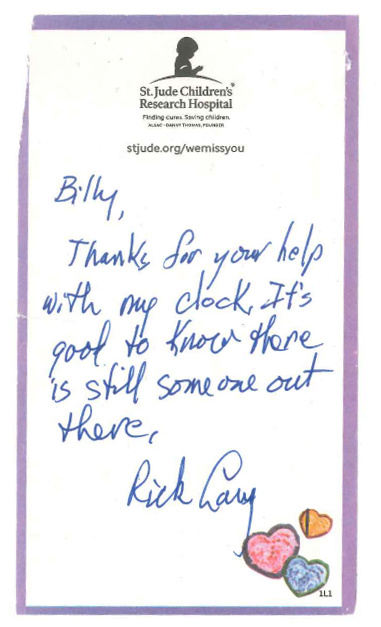 St. Jude Children's
Research Hospital
Finding cures. Saving children.
ALSAC • DANNY THOMAS, FOUNDER
stjude.org/wemissyou
Billy,
Thanks for your help
with my clock. It's
good to know there
is still someone out
there.
Rick
1L1